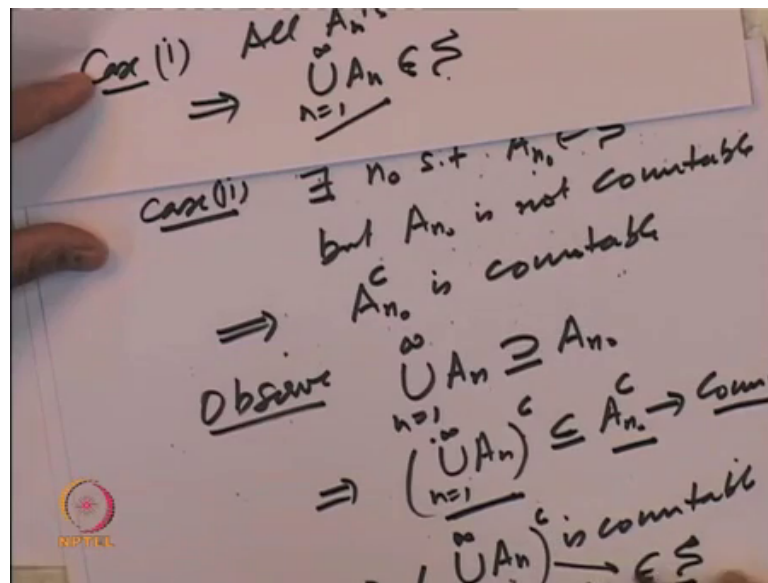 Case (i) All Aₙ's
⟹ ∞⋃n=1 Aₙ ∈ S
Case (ii) ∃ n₀ s.t. Aₙ₀ ∈ S
but Aₙ₀ is not countable
⟹ Aₙ₀ᶜ is countable
Observe ∞⋃n=1 Aₙ ⊇ Aₙ₀
⟹ (∞⋃n=1 Aₙ)ᶜ ⊆ Aₙ₀ᶜ → Coun
∞⋃ Aₙ)ᶜ is countable
→ ∈ S
NPTEL